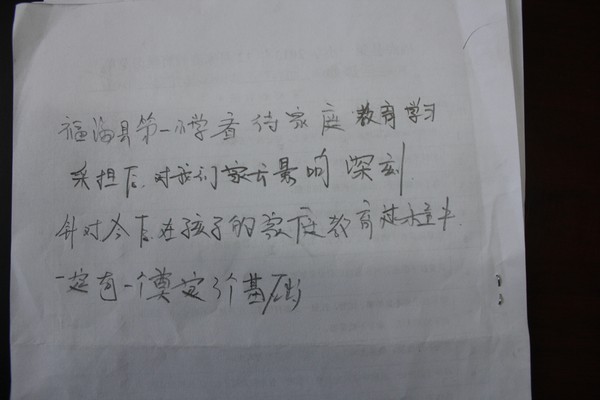 福海县第一小学看待家庭教育学习
采担后,对我们家长影响深刻.
针对今后在孩子的家庭教育过程中.
一定有一个奠定了个基础